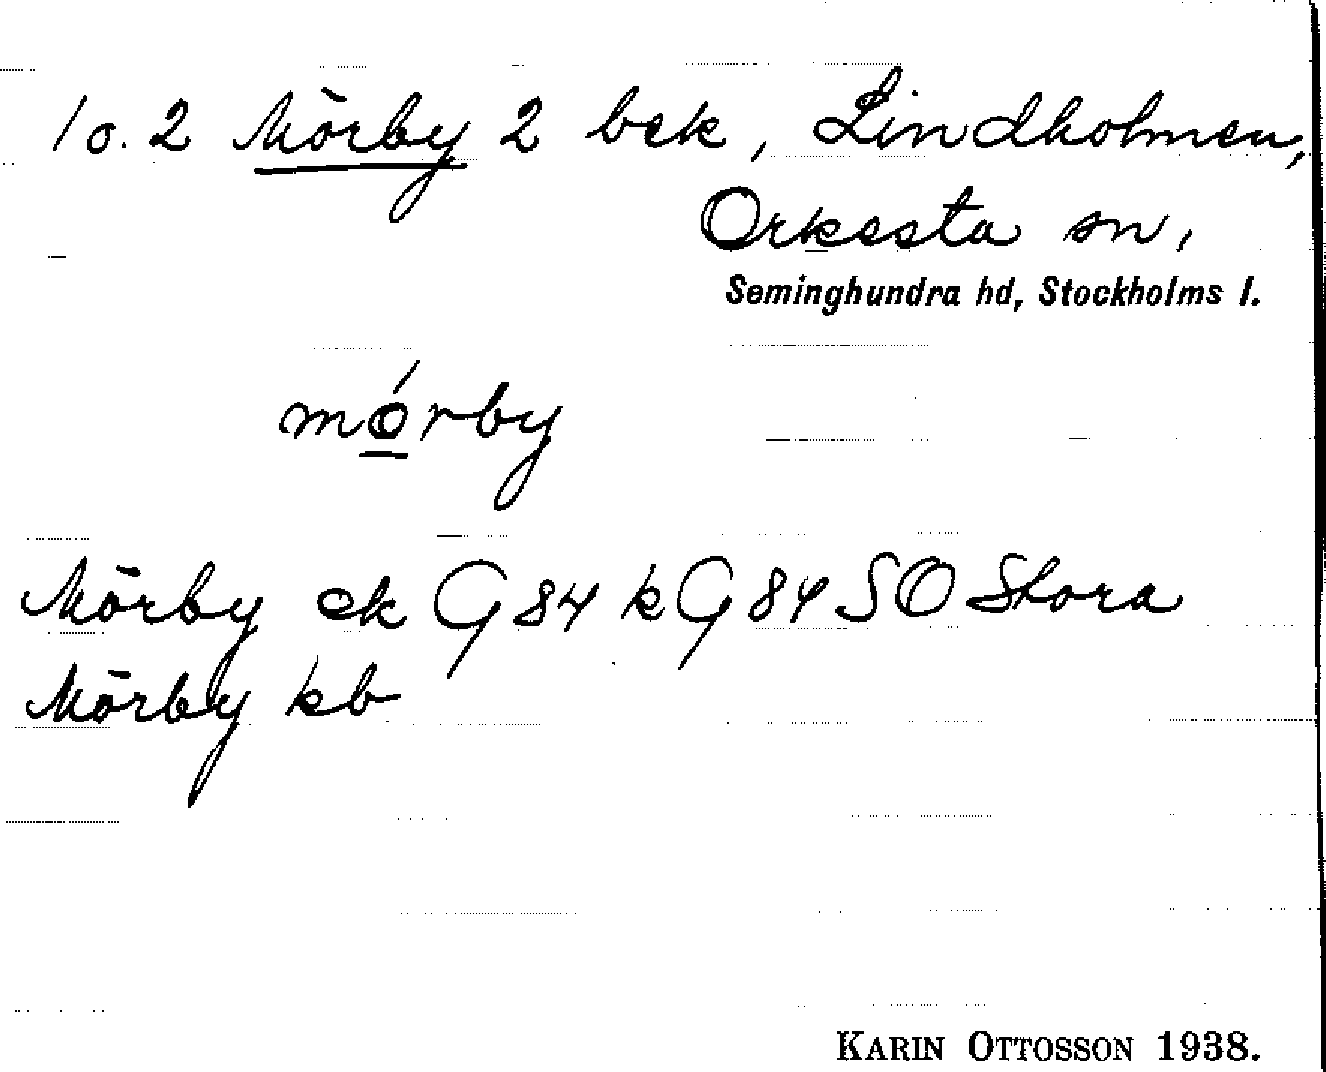 1 o. 2 Mörby 2 bek, Lindholmen,
Orkesta sn,
Seminghundra hd, Stockholms l.
mó̲rby
Mörby ek G 84 k G 84 SO Stora
Mörby kb
KARIN OTTOSSON 1938.